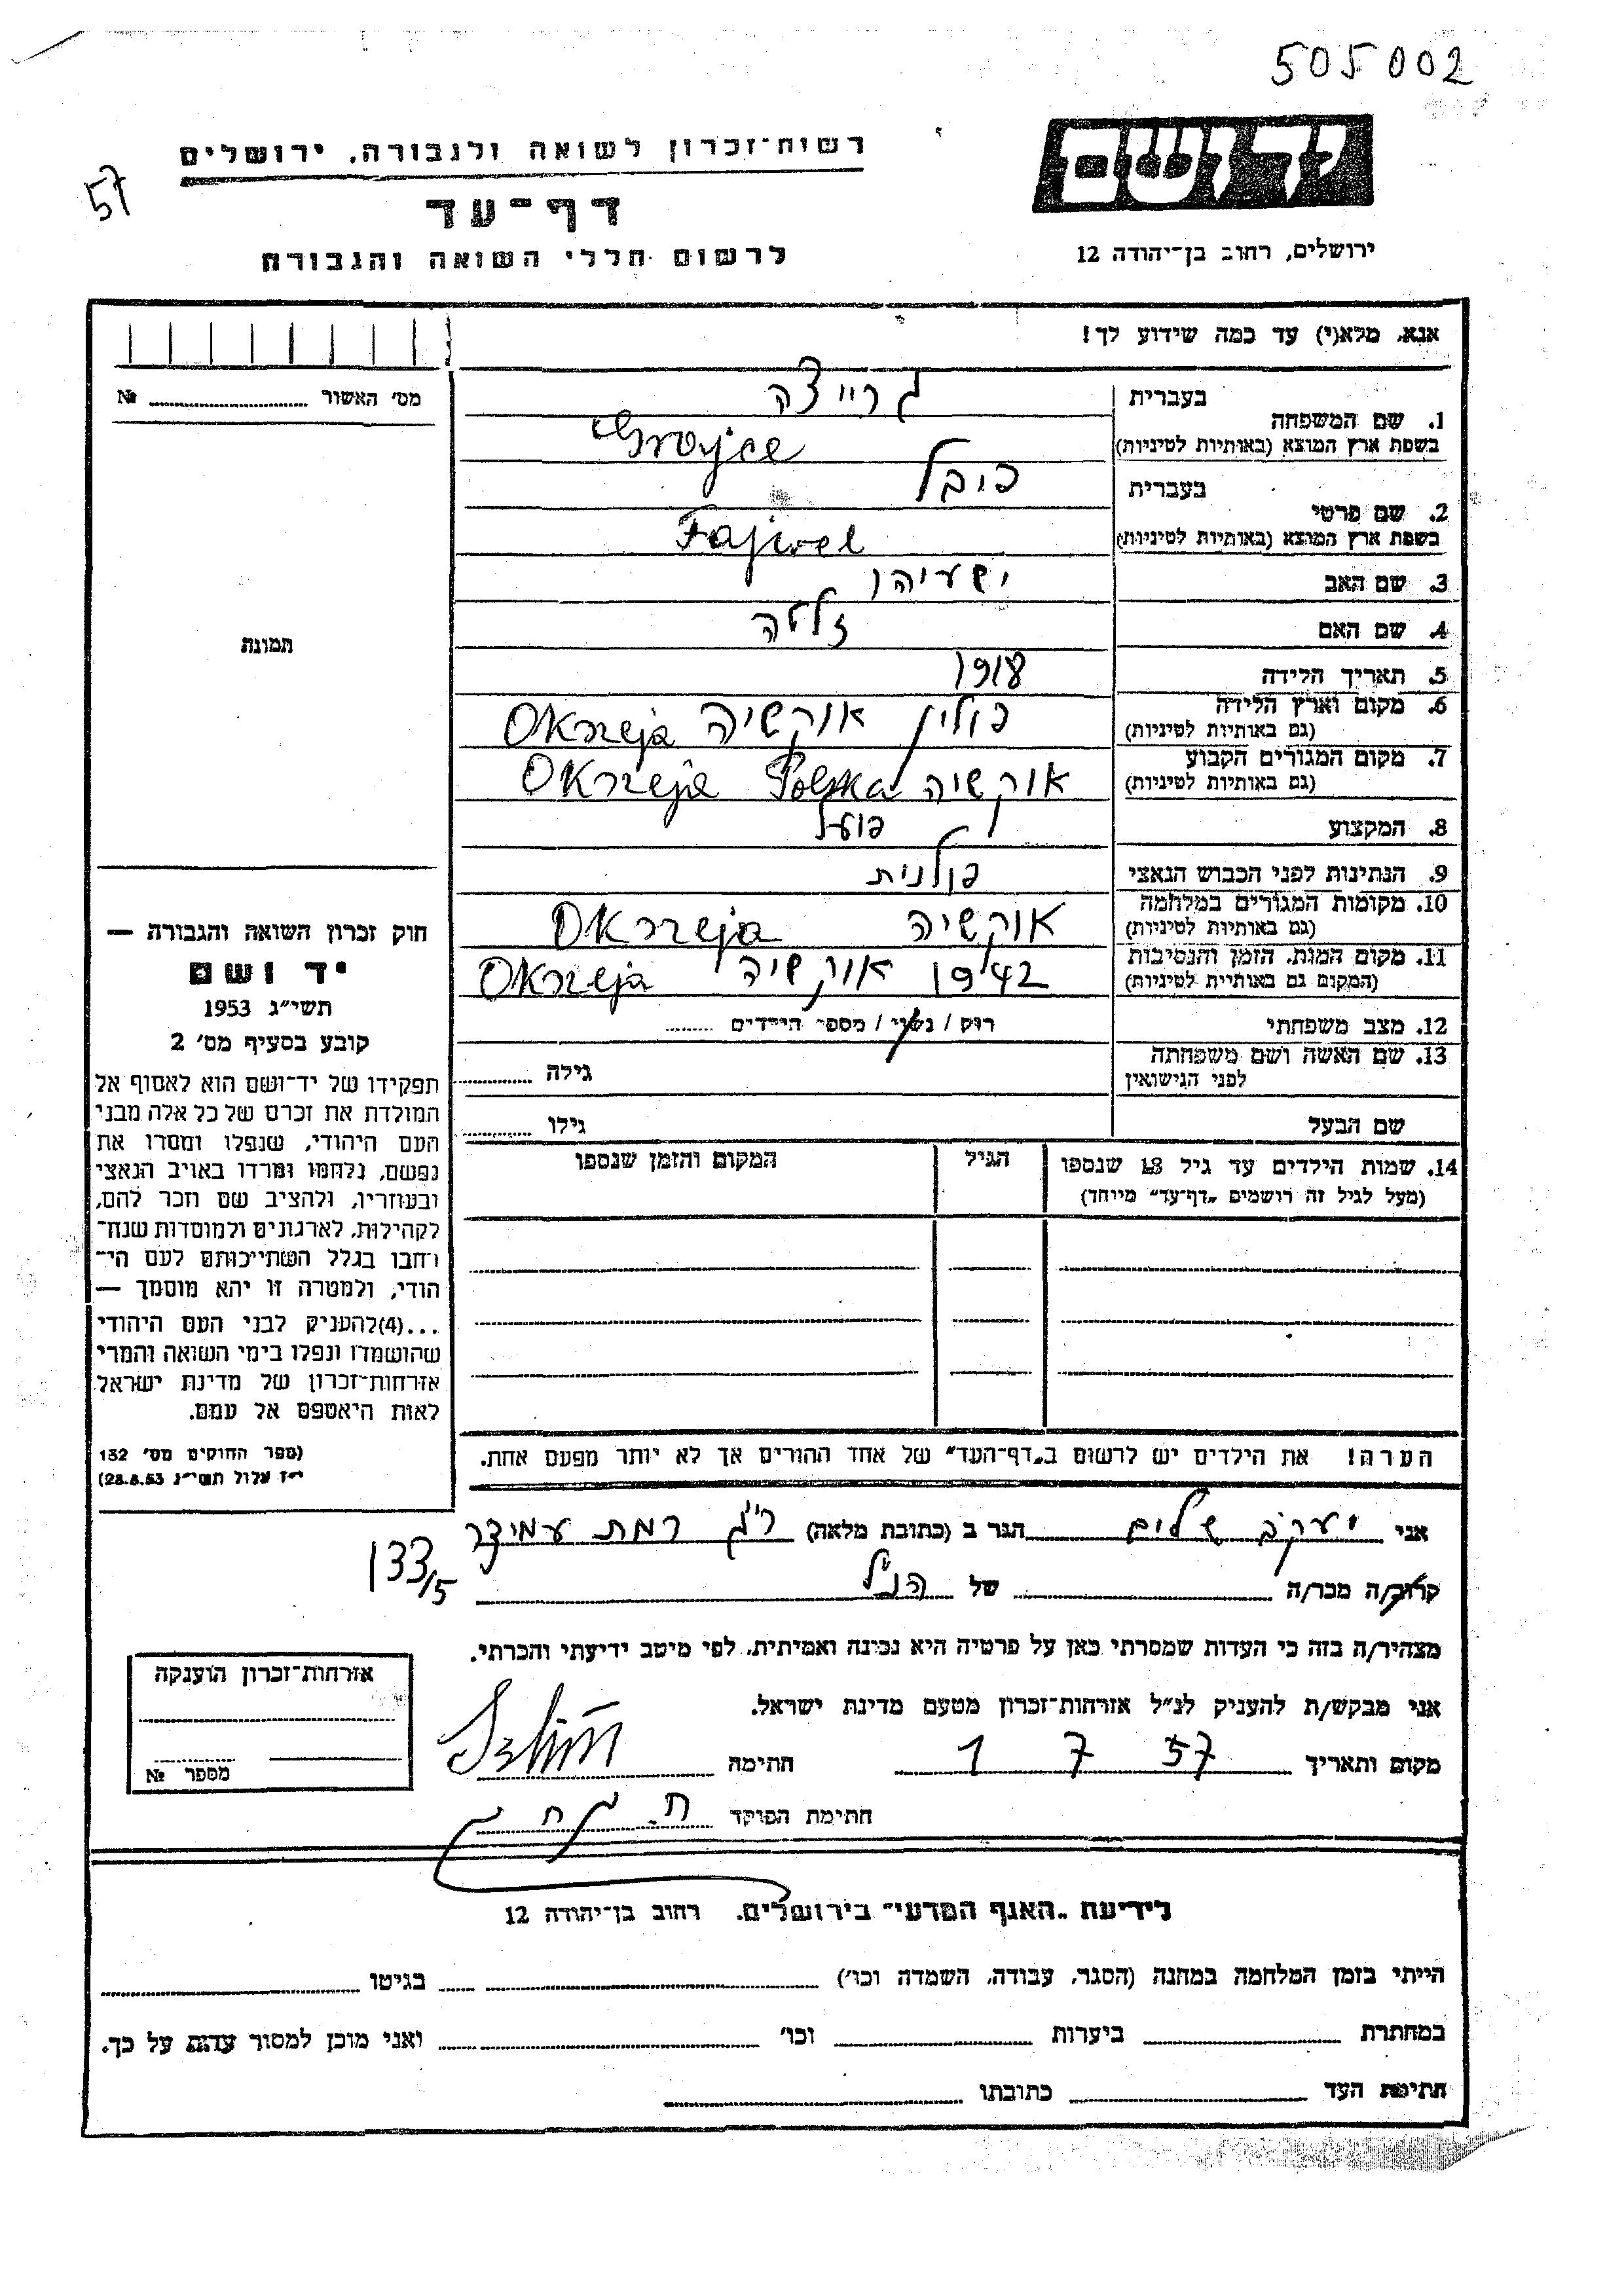 505002
רשות־זכרון לשואה ולגבורה, ירושלים
57
דף־עד
לרשום חללי השואה והגבורה
ידושם
ירושלים, רחוב בן־יהודה 12
אנא, מלא(י) עד כמה שידוע לך!
מס' האשור ........ №
תמונה
1. שם המשפחה בעברית גרייצה
בשפת ארץ המוצא (באותיות לטיניות) Grojce
2. שם פרטי בעברית פיבל
בשפת ארץ המוצא (באותיות לטיניות) Fajwel
3. שם האב ישעיהו
4. שם האם זלטה
5. תאריך הלידה 1918
6. מקום וארץ הלידה (גם באותיות לטיניות) פולין אוקשיה Okrzeja
7. מקום המגורים הקבוע (גם באותיות לטיניות) אוקשיה Polska Okrzeja
8. המקצוע פועל
9. הנתינות לפני הכבוש הנאצי פולנית
10. מקומות המגורים במלחמה (גם באותיות לטיניות) אוקשיה Okrzeja
11. מקום המות, הזמן והנסיבות (המקום גם באותיית לטיניות) 1942 אוקשיה Okrzeja
12. מצב משפחתי רווק / נשוי / מספר הילדים ........
13. שם האשה ושם משפחתה לפני הנישואין גילה ........
שם הבעל גילו ........
14. שמות הילדים עד גיל 18 שנספו (מעל לגיל זה רושמים „דף־עד" מיוחד) הגיל המקום והזמן שנספו
הערה! את הילדים יש לרשום ב„דף־העד" של אחד ההורים אך לא יותר מפעם אחת.
חוק זכרון השואה והגבורה —
יד ושם
תשי"ג 1953
קובע בסעיף מס' 2
תפקידו של יד־ושם הוא לאסוף אל
המולדת את זכרם של כל אלה מבני
העם היהודי, שנפלו ומסרו את
נפשם, נלחמו ומרדו באויב הנאצי
ובעוזריו, ולהציב שם וזכר להם,
לקהילות, לארגונים ולמוסדות שנח־
רחבו בגלל השתייכותם לעם הי־
הודי, ולמטרה זו יהא מוסמך —
...(4)להעניק לבני העם היהודי
שהושמדו ונפלו בימי השואה והמרי
אזרחות־זכרון של מדינת ישראל
לאות היאספם אל עמם.
(ספר החוקים מס' 132
י"ז אלול תשי"ג 28.8.53)
אני יעקב שלים הגר ב (כתובת מלאה) ר"ג רמת עמידר
133/5
קרוב/ה מכר/ה של הנ"ל
מצהיר/ה בזה כי העדות שמסרתי כאן על פרטיה היא נכונה ואמיתית, לפי מיטב ידיעתי והכרתי.
אני מבקש/ת להעניק לנ"ל אזרחות־זכרון מטעם מדינת ישראל.
מקום ותאריך 1 7 57 חתימה
חתימת הפוקד
אזרחות־זכרון הוענקה
מספר №
לידיעת „האגף המדעי" בירושלים, רחוב בן־יהודה 12
הייתי בזמן המלחמה במחנה (הסגר, עבודה, השמדה וכו') ........ בגיטו ........
במחתרת ........ ביערות ........ וכו' ........ ואני מוכן למסור עדות על כך.
חתימת העד ........ כתובתו ........